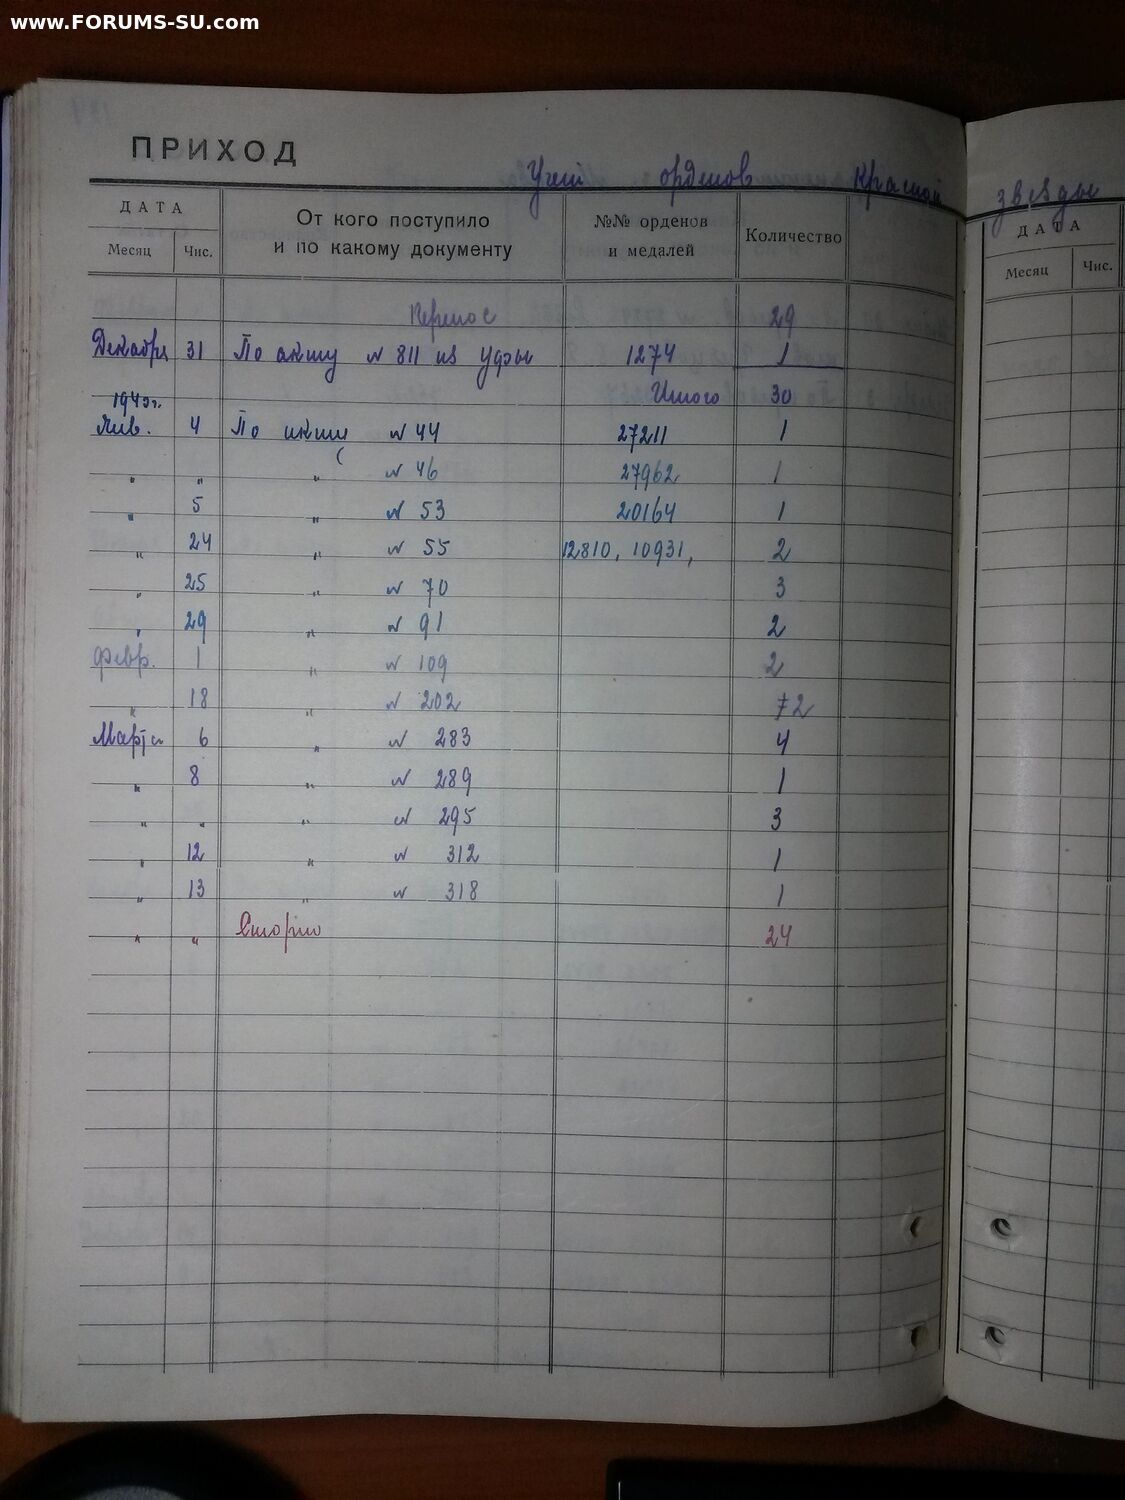 www.FORUMS-SU.com
ПРИХОД
Учет орденов Красной звезды
ДАТА От кого поступило и по какому документу №№ орденов и медалей Количество ДАТА
Месяц Чис. Месяц Чис.
Перенос 29
Декабрь 31 По акту № 811 из 1274 1
Итого 30
Янв. 4 По акту № 44 27211 1
" " " № 46 27962 1
" 5 " № 53 20164 1
" 24 " № 55 12810, 10931, 2
" 25 " № 70 3
" 29 " № 91 2
Февр. 1 " № 109 2
" 18 " № 202 72
Марта 6 " № 283 4
" 8 " № 289 1
" " " № 295 3
" 12 " № 312 1
" 13 " № 318 1
" " Сторно 24